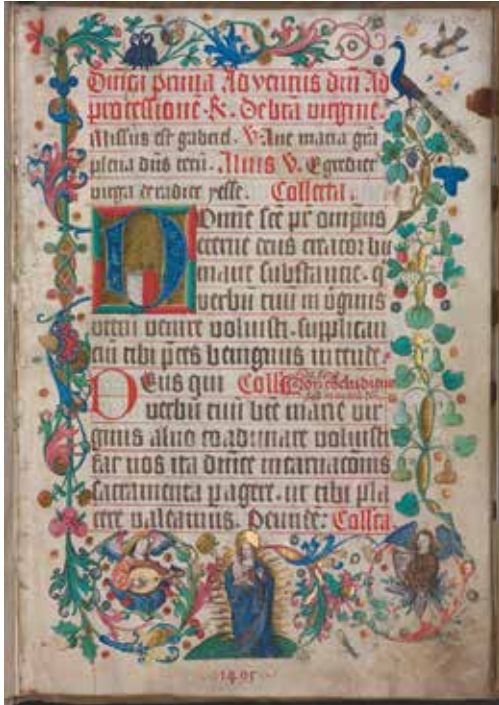 Dn̄ica prima Adventus dn̄i Ad
processionē. R. De btā virgine
Missus est gabriel. V. Ave maria grā
plena dn̄s tecū. Alius V. Egredietr
virga de radice yesse. Collecta.
Domine scē pr̄ omp̄tns
eterne deus creator hu
mane substantie. q
verbū tuū in v̄ginis
uterū venire voluisti. supplican
tiū tibi p̄ces benignus intende.
Deus qui Coll̄a
non concluditur
verbū tuū btē marie vir
ginis alvo coadunare voluisti
fac nos ita digne incarnac̄onis
sacramenta pagere. ut tibi pla
cere valeamus. Per unde: Collcta.